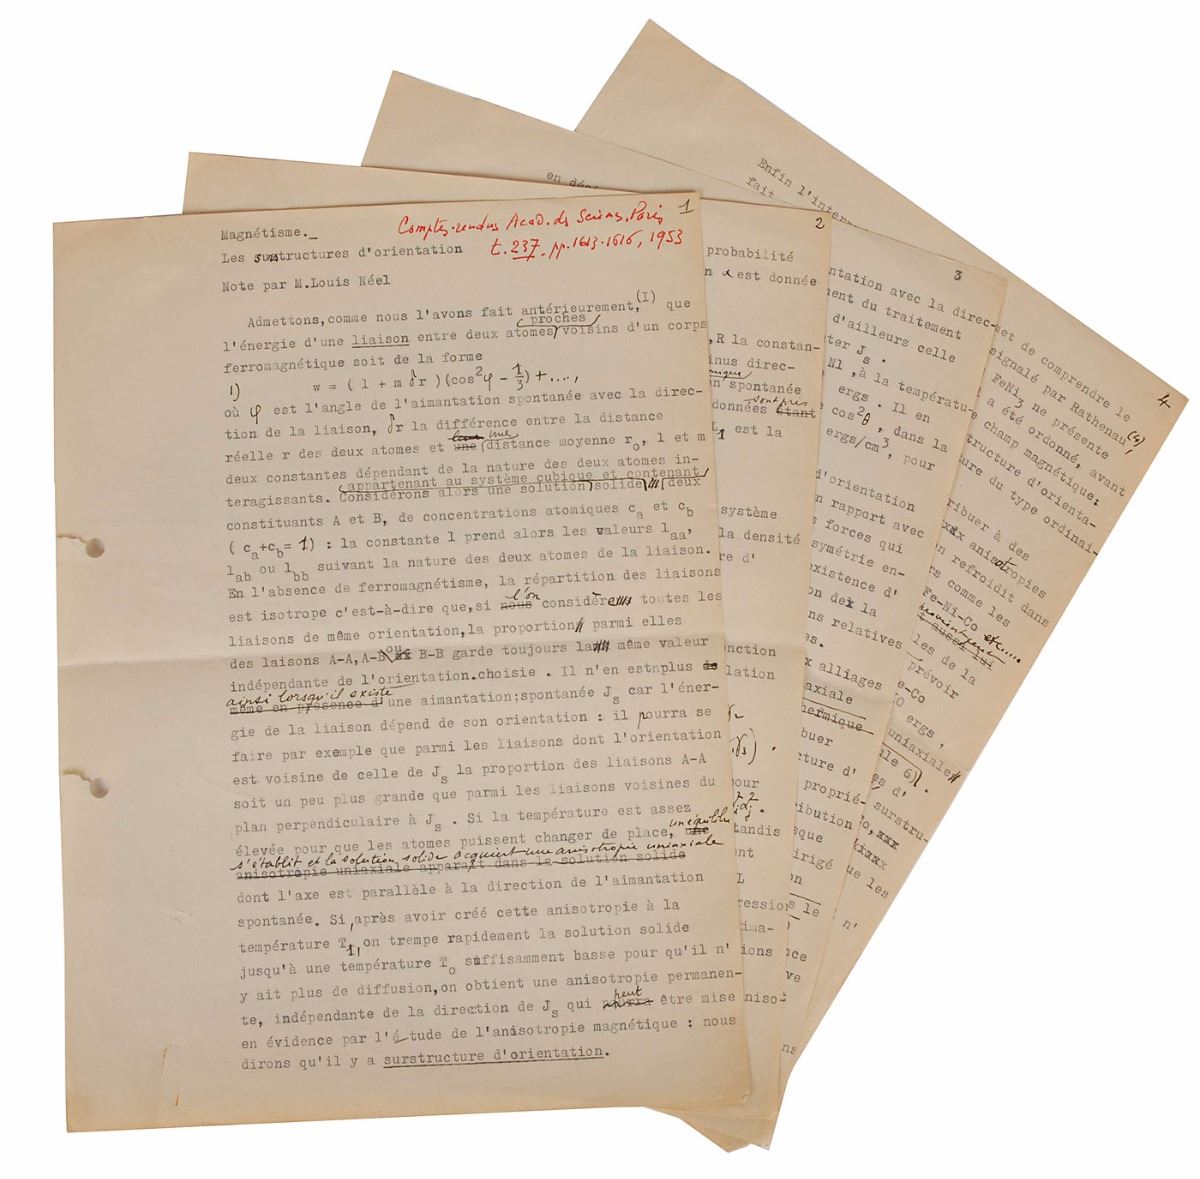 Magnétisme._
Comptes-rendus Acad. des Sciences, Paris
t. 237. pp. 1613-1616, 1953
1
Les surstructures d'orientation
Note par M.Louis Néel
Admettons,comme nous l'avons fait antérieurement,(I) que
l'énergie d'une liaison entre deux atomes proches voisins d'un corps
ferromagnétique soit de la forme
1) w = ( l + m δr )(cos²φ - 1/3) + ....,
où φ est l'angle de l'aimantation spontanée avec la direc-
tion de la liaison, δr la différence entre la distance
réelle r des deux atomes et une distance moyenne r₀, l et m
deux constantes dépendant de la nature des deux atomes in-
teragissants. Considérons alors une solution solide appartenant au système cubique et contenant deux
constituants A et B, de concentrations atomiques c_a et c_b
( c_a+c_b= 1) : la constante l prend alors les valeurs l_aa,
l_ab ou l_bb suivant la nature des deux atomes de la liaison.
En l'absence de ferromagnétisme, la répartition des liaisons
est isotrope c'est-à-dire que,si l'on considère toutes les
liaisons de même orientation,la proportion parmi elles
des laisons A-A, A-B ou B-B garde toujours la même valeur
indépendante de l'orientation.choisie . Il n'en est plus
ainsi lorsqu'il existe une aimantation;spontanée J_s car l'éner-
gie de la liaison dépend de son orientation : il pourra se
faire par exemple que parmi les liaisons dont l'orientation
est voisine de celle de J_s la proportion des liaisons A-A
soit un peu plus grande que parmi les liaisons voisines du
plan perpendiculaire à J_s . Si la température est assez
élevée pour que les atomes puissent changer de place, un équilibre
s'établit et la solution solide acquiert une anisotropie uniaxiale
anisotropie uniaxiale apparaît dans la solution solide
dont l'axe est parallèle à la direction de l'aimantation
spontanée. Si,après avoir créé cette anisotropie à la
température T₁,on trempe rapidement la solution solide
jusqu'à une température T₀ suffisamment basse pour qu'il n'
y ait plus de diffusion,on obtient une anisotropie permanen-
te, indépendante de la direction de J_s qui peut être mise
en évidence par l'étude de l'anisotropie magnétique : nous
dirons qu'il y a surstructure d'orientation.
2
probabilité
est donnée
,R la constan-
inus direc-
n spontanée
données sont pris étant
est la
système
la densité
re d'
nction
lation
pour
tandis
ent
L
ression
ima-
ions
niso-
en dé
3
ntation avec la direc-
ment du traitement
d'ailleurs celle
ter J_s .
Nl ,à la températu-
ergs . Il en
cos²θ , dans la
ergs/cm³, pour
d'orientation
n rapport avec
s forces qui
symétrie en-
existence d'
on de la
ns relatives
es.
x alliages
axiale
thermique
buer
cture d'
proprié-
ribution
sque
irigé
on
s le
nce
ve
ns
Enfin l'inter
fait
4
et de comprendre le
signalé par Rathenau(4),
FeNi₃ ne présente
a été ordonné, avant
champ magnétique:
tructure d'orienta-
ure du type ordinai-
ribuer à des
anisotropies
n refroidit dans
rs comme les
Fe-Ni-Co etc.....
les de la
prévoir
e-Co
ergs ,
uniaxiale
ale 6) .
es d'
surstru-
Co, xxx
ixxx
ue les
n'